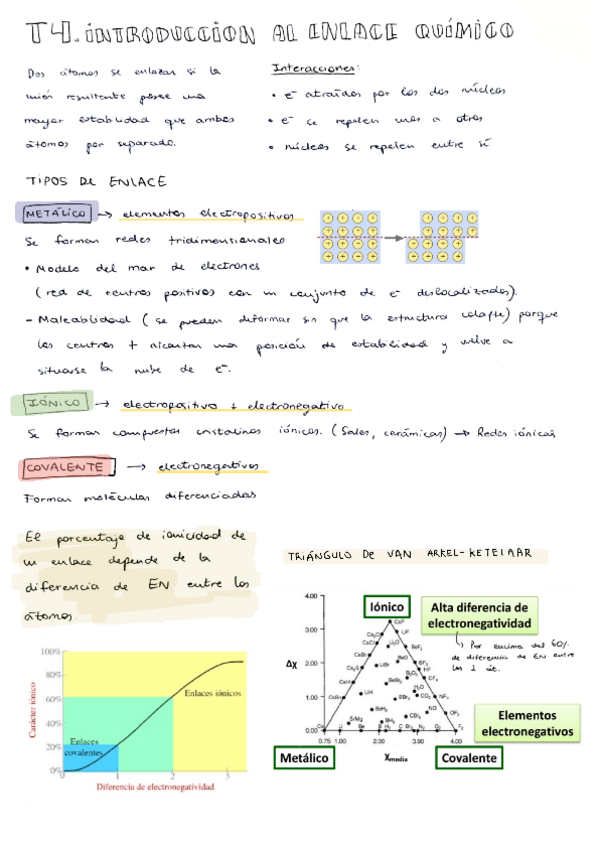 T4. INTRODUCCION AL ENLACE QUÍMICO
Dos átomos se enlazan si la
unión resultente posee una
mayor estabilidad que ambos
átomos por separado.
Interacciones:
• e⁻ atraídos por los dos núcleos
• e⁻ se repelen unos a otros
• núcleos se repelen entre sí
TIPOS DE ENLACE
METÁLICO → elementos electropositivos
Se forman redes tridimensionales
• Modelo del mar de electrones
(red de centros positivos con un conjunto de e⁻ deslocalizados).
- Maleabilidad (se pueden deformar sin que la estructura colapse) porque
los centros + alcanzan una posición de estabilidad y vuelve a
situarse la nube de e⁻.
IÓNICO → electropositivo + electronegativo
Se forman compuestos cristalinos iónicos. (Sales, cerámicas) → Redes iónicas
COVALENTE → electronegativos
Forman moléculas diferenciadas
El porcentaje de ionicidad de
un enlace depende de la
diferencia de EN entre los
átomos
TRIÁNGULO DE VAN ARKEL-KETELAAR
100%
80%
60%
40%
20%
0%
0 1 2 3
Carácter iónico
Enlaces iónicos
Enlaces
covalentes
Diferencia de electronegatividad
Iónico
Alta diferencia de
electronegatividad
↳ Por encima del 60%
de diferencia de EN entre
los 2 
Elementos
electronegativos
Metálico
Covalente
Δχ
χmedia
4.00
3.00
2.00
1.00
0.00
0.75 1.00 2.00 3.00 4.00
CsF
LiF
BeF₂
BF₃
HF
CF₄
NF₃
OF₂
F₂
CO₂
NO
LiH